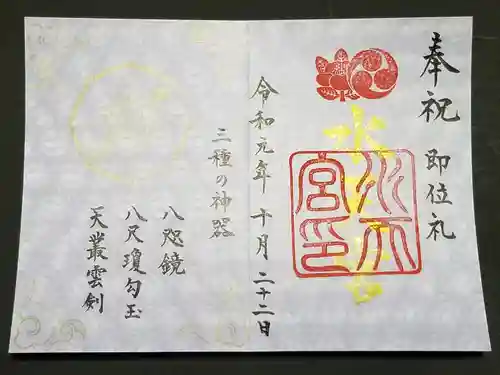 奉祝 即位礼
水天宮
水天
宮印
令和元年十月二十二日
三種の神器
八咫鏡
八尺瓊勾玉
天叢雲剣